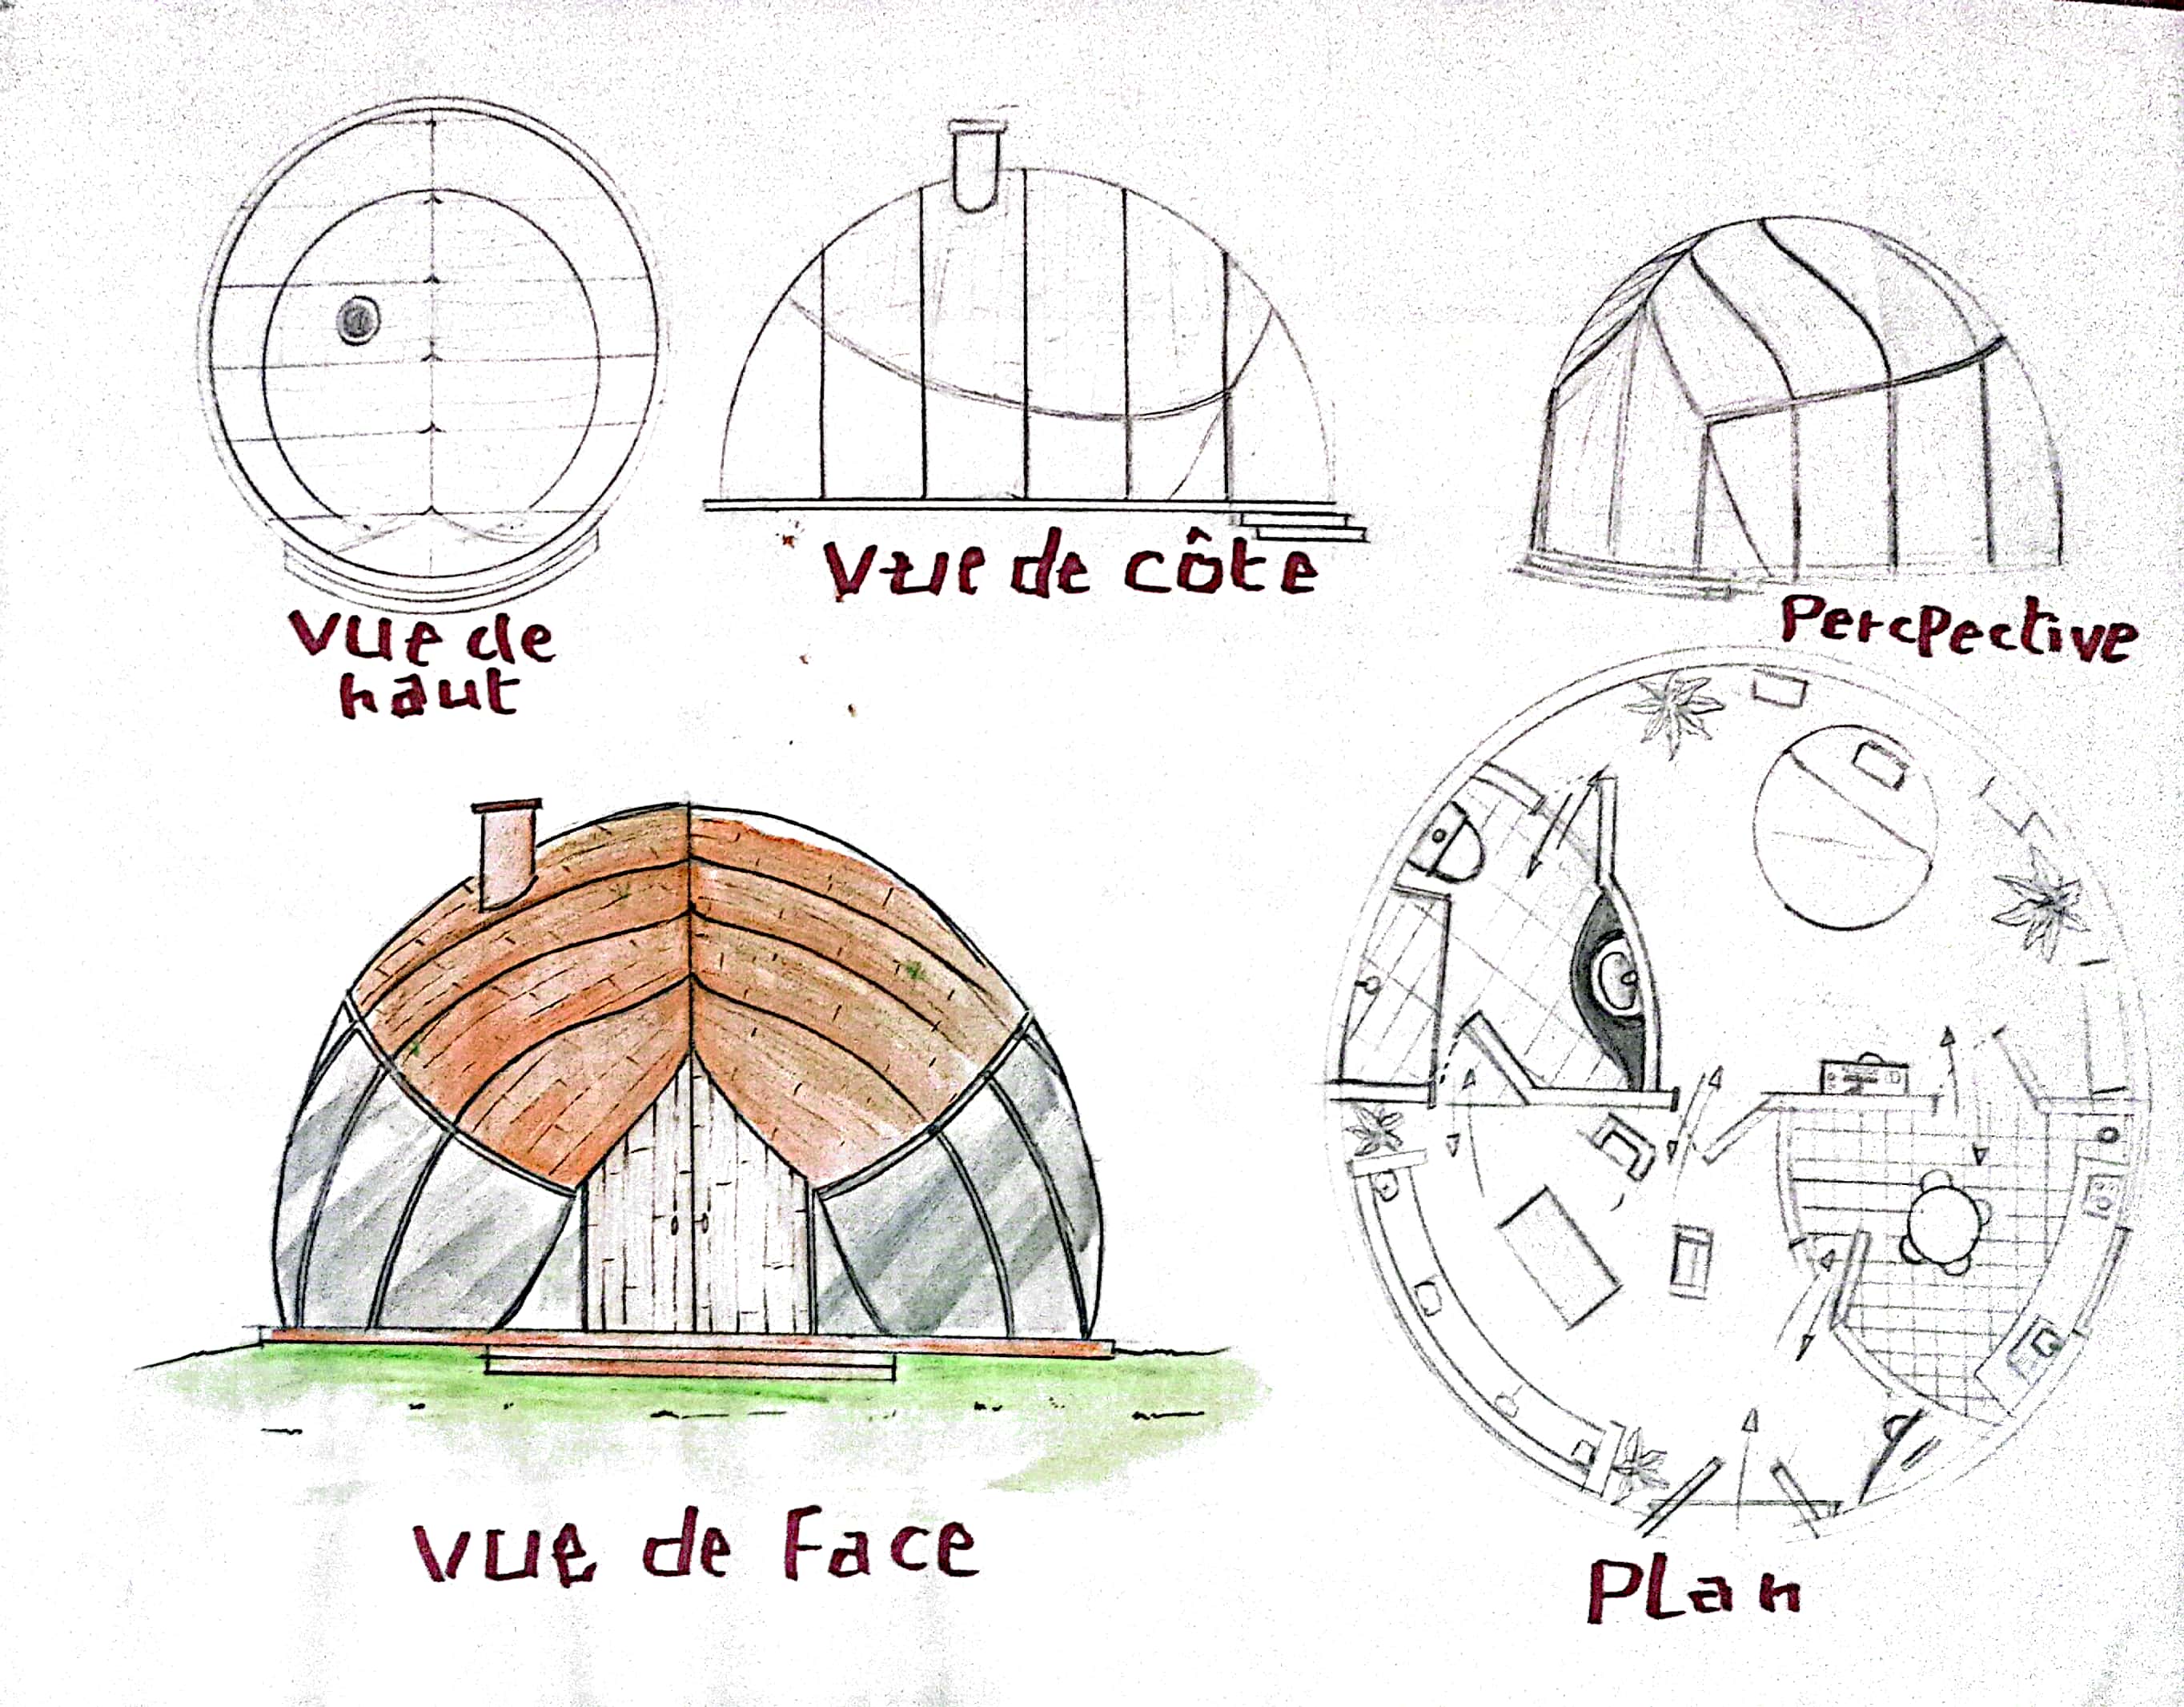 Vue de
haut
Vue de côte
Percpective
Vue de Face
Plan